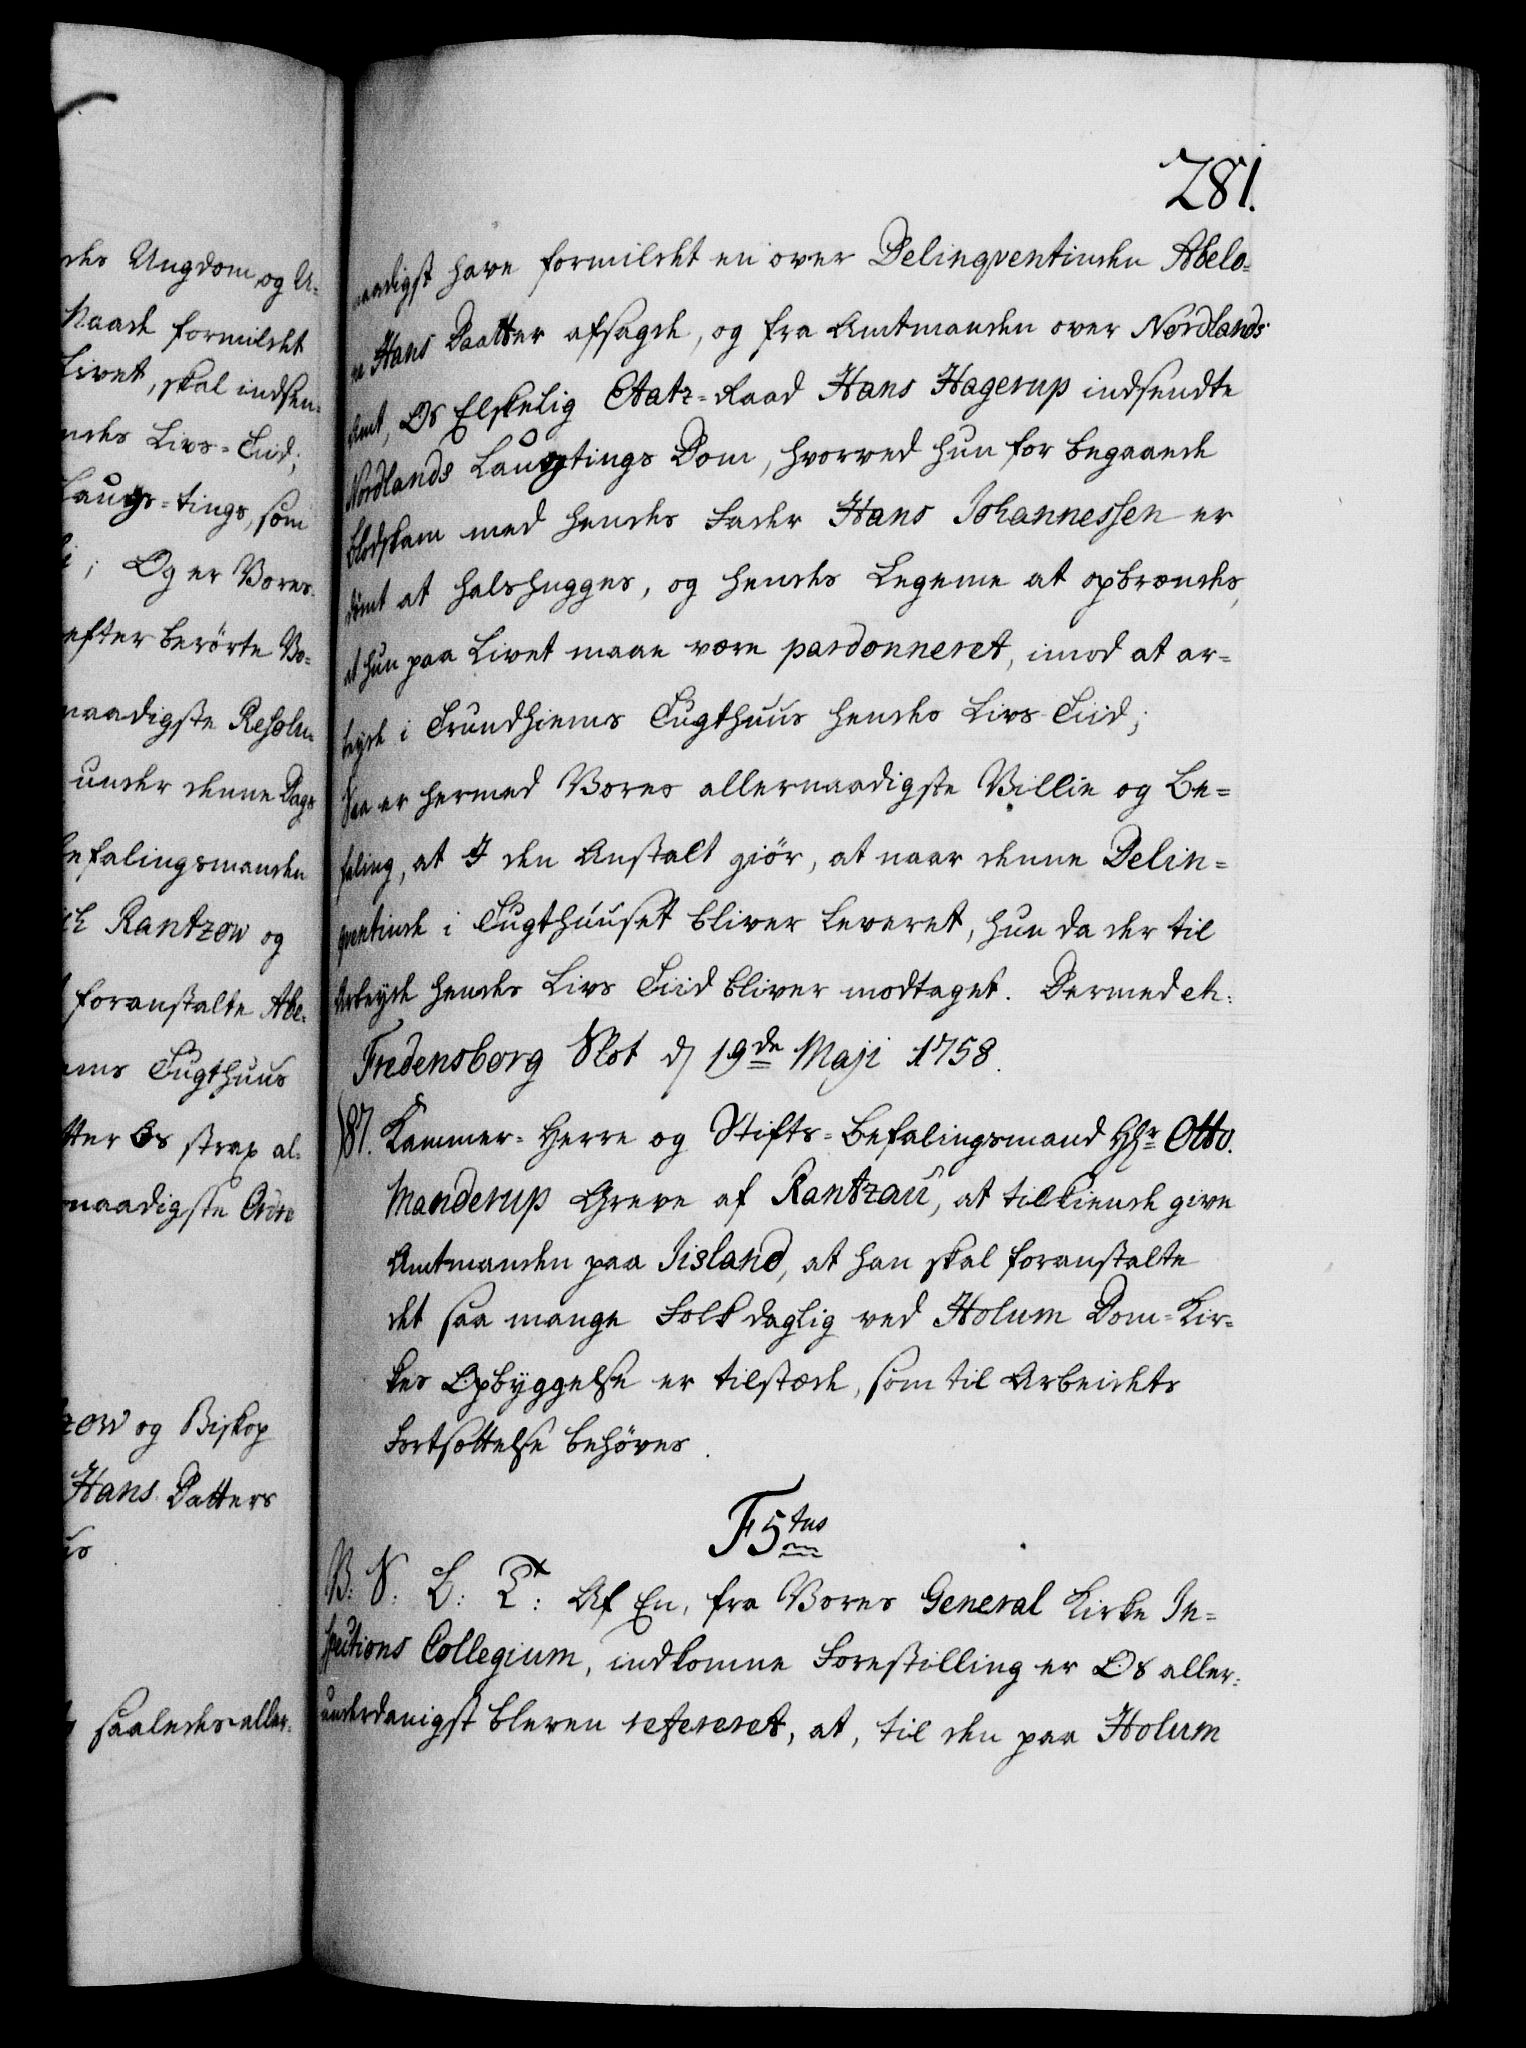 des Ungdom, og U-
Naade formildet
Livet, skal indsen-
ndes Livs-Tiid;
Laugs-tings, som
; Og er Vores
efter berørte Vo-
naadigste Resolu-
under denne Dags
befalingsmanden
Rantzow og
foranstalte Abe-
ems Tugthuus
tter Os strax al-
naadigste Ordre
zow og Biskop
Hans Datters
us
saaledes aller-
281.
naadigst have formildet en over Delinqventinden Abelo-
ne Hans Daatter afsagde, og fra Amtmanden over Nordlands
Amt, Os Elskelig Etatz-Raad Hans Hagerup indsendte
Nordlands Laugtings Dom, hvorved hun for begaaede
blodskam med hendes Fader Hans Johannessen er
dømt at halshugges, og hendes Legeme at opbrændes,
at hun paa Livet maae være pardonneret, imod at ar-
beyde i Trundhiems Tugthuus hendes Livs Tiid;
Saa er hermed Vores allernaadigste Villie og Be-
faling, at I den Anstalt giør, at naar denne Delin-
qventinde i Tugthuuset bliver leveret, hun da der til
Arbeyde hendes Livs Tiid bliver modtaget. Dermed etc.
Fredensborg Slot d 19de Maji 1758.
187. Kammer-Herre og Stifts-Befalingsmand Hr Otto
Manderup Greve af Rantzau, at tilkiende give
Amtmanden paa Iisland, at han skal foranstalte
det saa mange Folk daglig ved Holum Dom-Kir-
kes Opbyggelse er tilstæde, som til Arbeidets
Fortsættelse behøves.
F 5tus
Af En, fra Vores General Kirke In-
spections Collegium, indkomne Forestilling er Os aller-
underdanigst bleven refereret, at, til den paa Holum